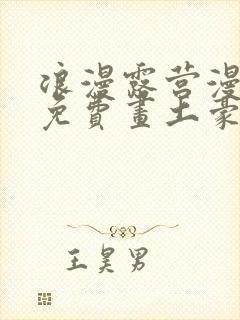 浪漫露营漫
免費畫土豪
王昊男